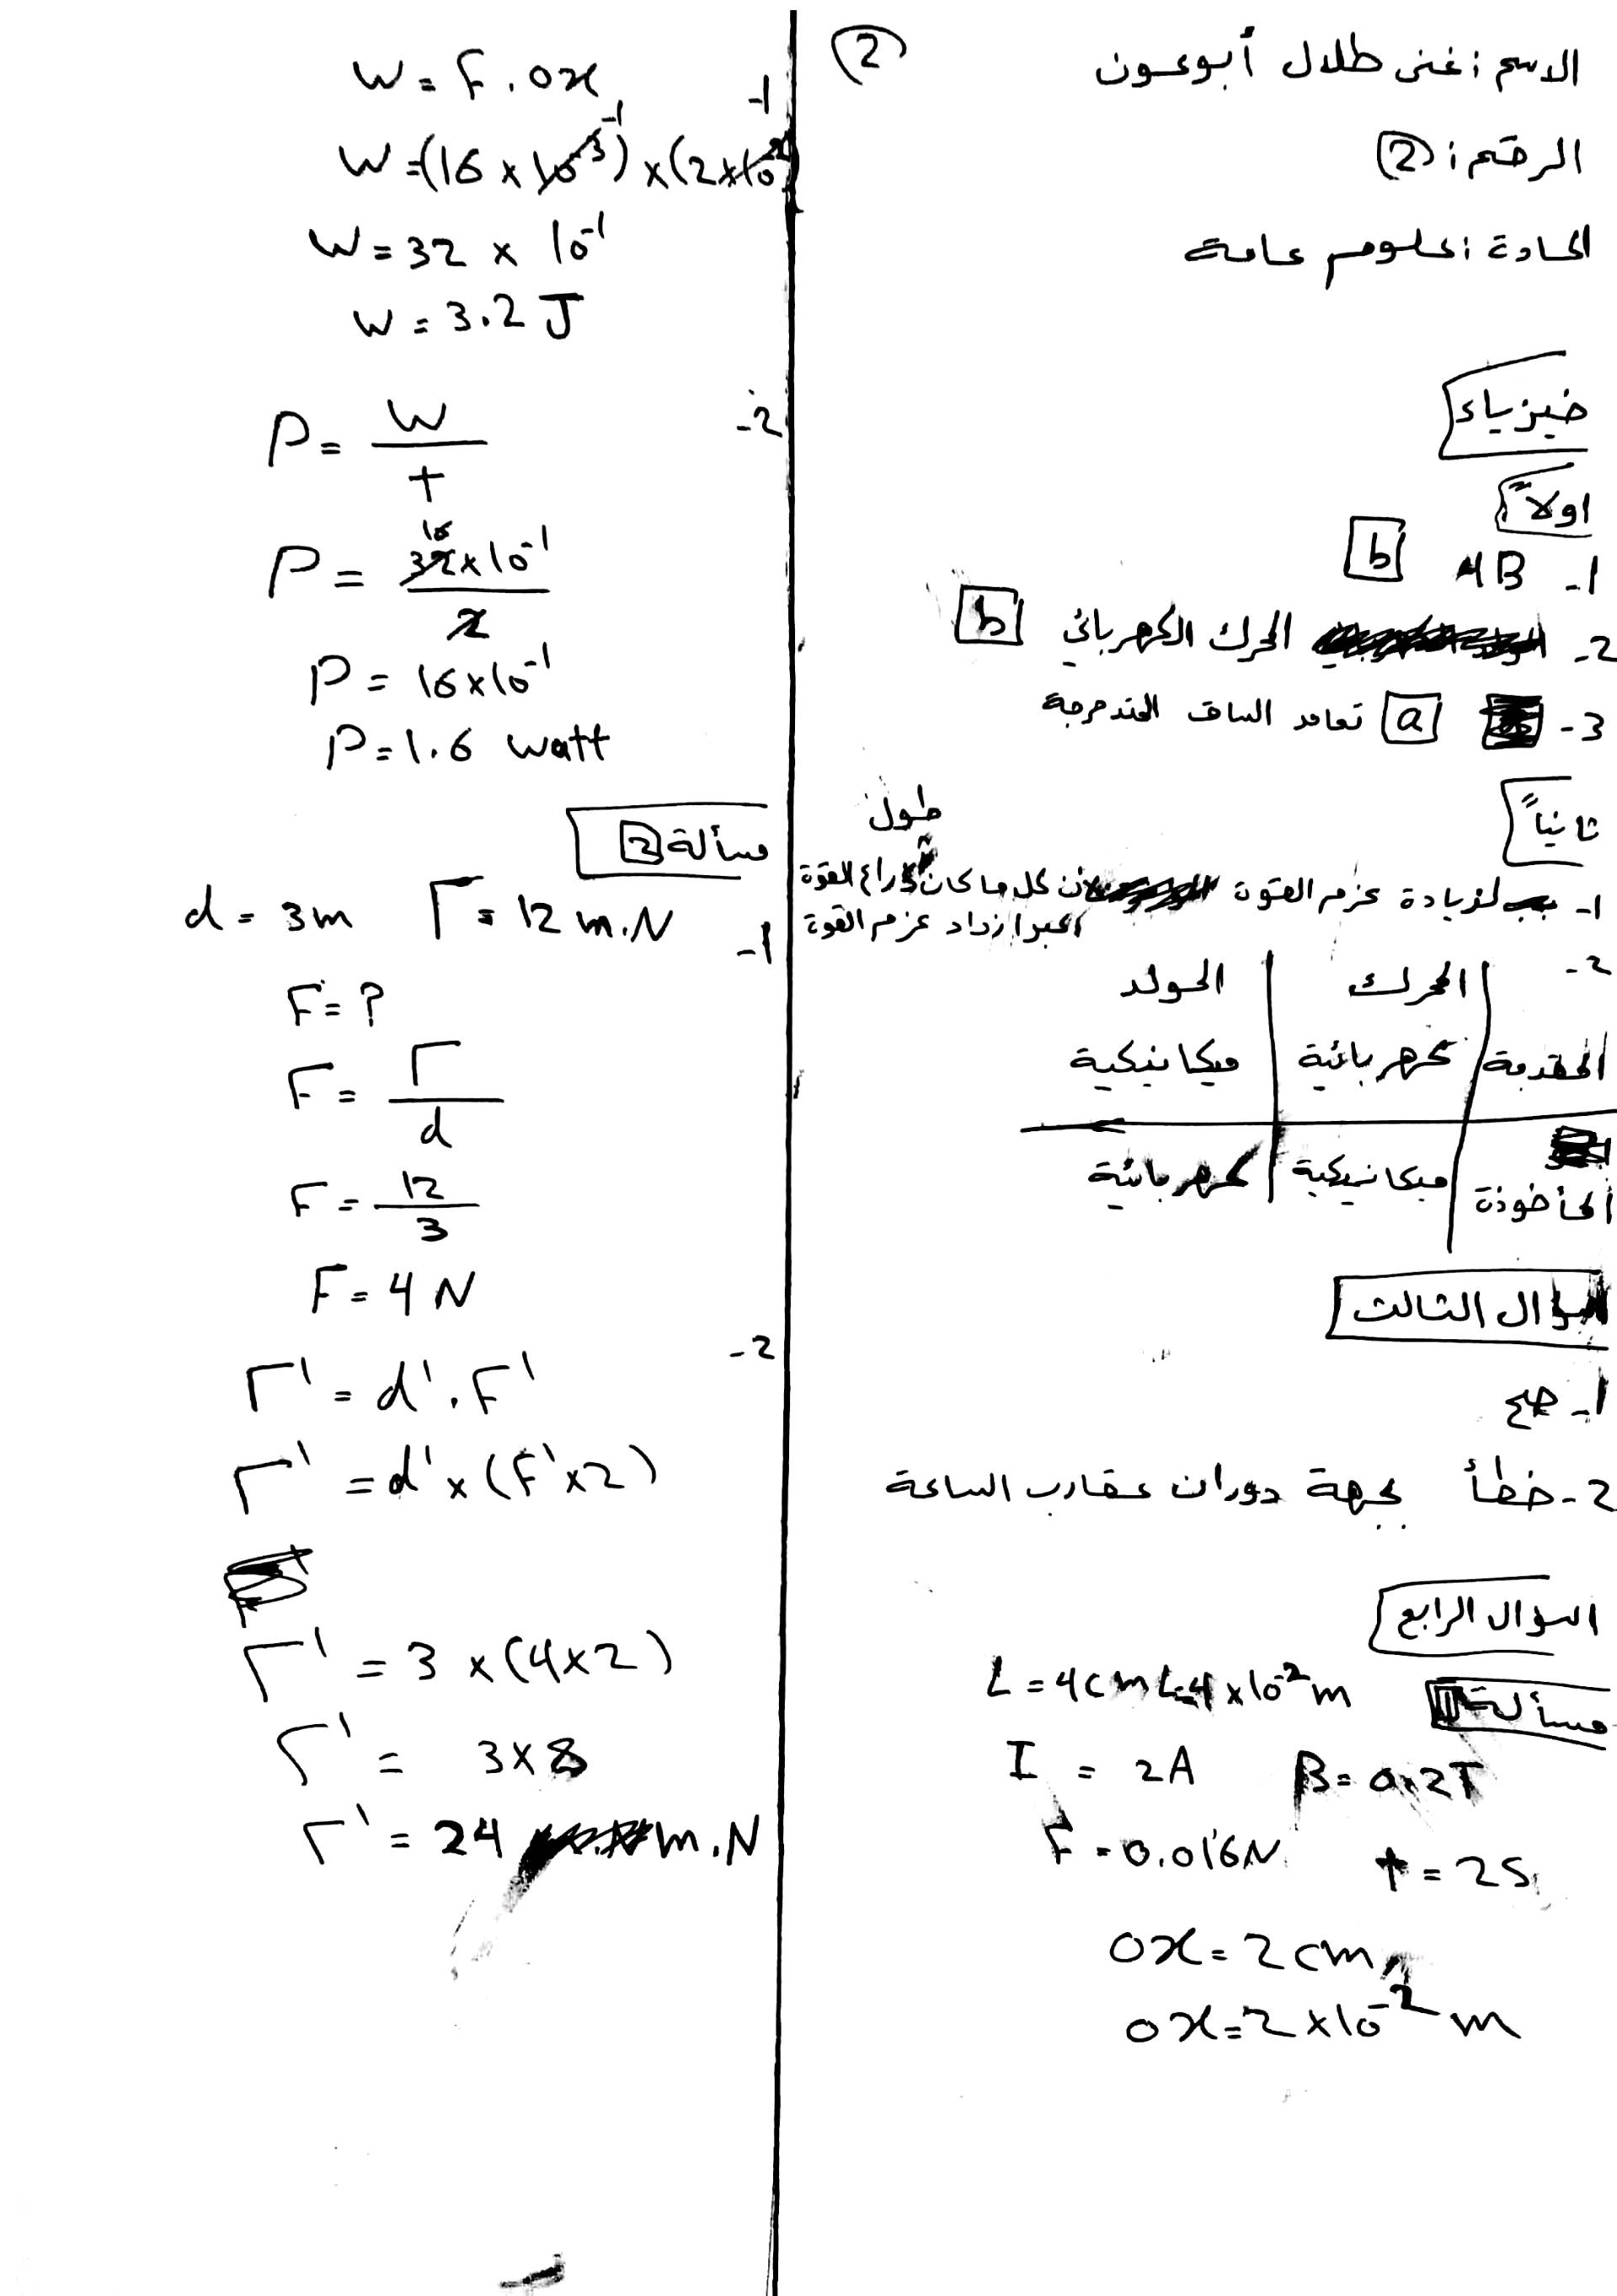 (2)
الاسم : غنى طلال أبوعون
الرقم : (2)
المادة : علوم عامة
فيزياء
اولاً
1- AB b
2- المحرك الكهربائي b
3- a تعامد الساق المتدحرجة
ثانياً
طول
1- لزيادة عزم القوة لأن كل ما كان ذراع القوة
اكبر ازداد عزم القوة
2-
المحرك المولد
المقدمة كهربائية ميكانيكية
المأخوذة ميكانيكية كهربائية
السؤال الثالث
1- صح
2- خطأ بجهة دوران عقارب الساعة
السؤال الرابع
مسألة 1
L = 4cm L=4 x 10⁻² m
I = 2A B = 0.2T
F = 0.016N t = 2s
ox = 2cm
ox = 2 x 10⁻² m
1-
W = F . ox
W = (16 x 10⁻³) x (2 x 10⁻²)
W = 32 x 10⁻¹
W = 3.2 J
2-
P = W / t
P = 32 x 10⁻¹ / 2
P = 16 x 10⁻¹
P = 1.6 watt
مسألة 2
d = 3m Γ = 12 m.N
1-
F = ?
F = Γ / d
F = 12 / 3
F = 4 N
2-
Γ' = d' . F'
Γ' = d' x (F' x 2)
Γ' = 3 x (4 x 2)
Γ' = 3 x 8
Γ' = 24 m.N